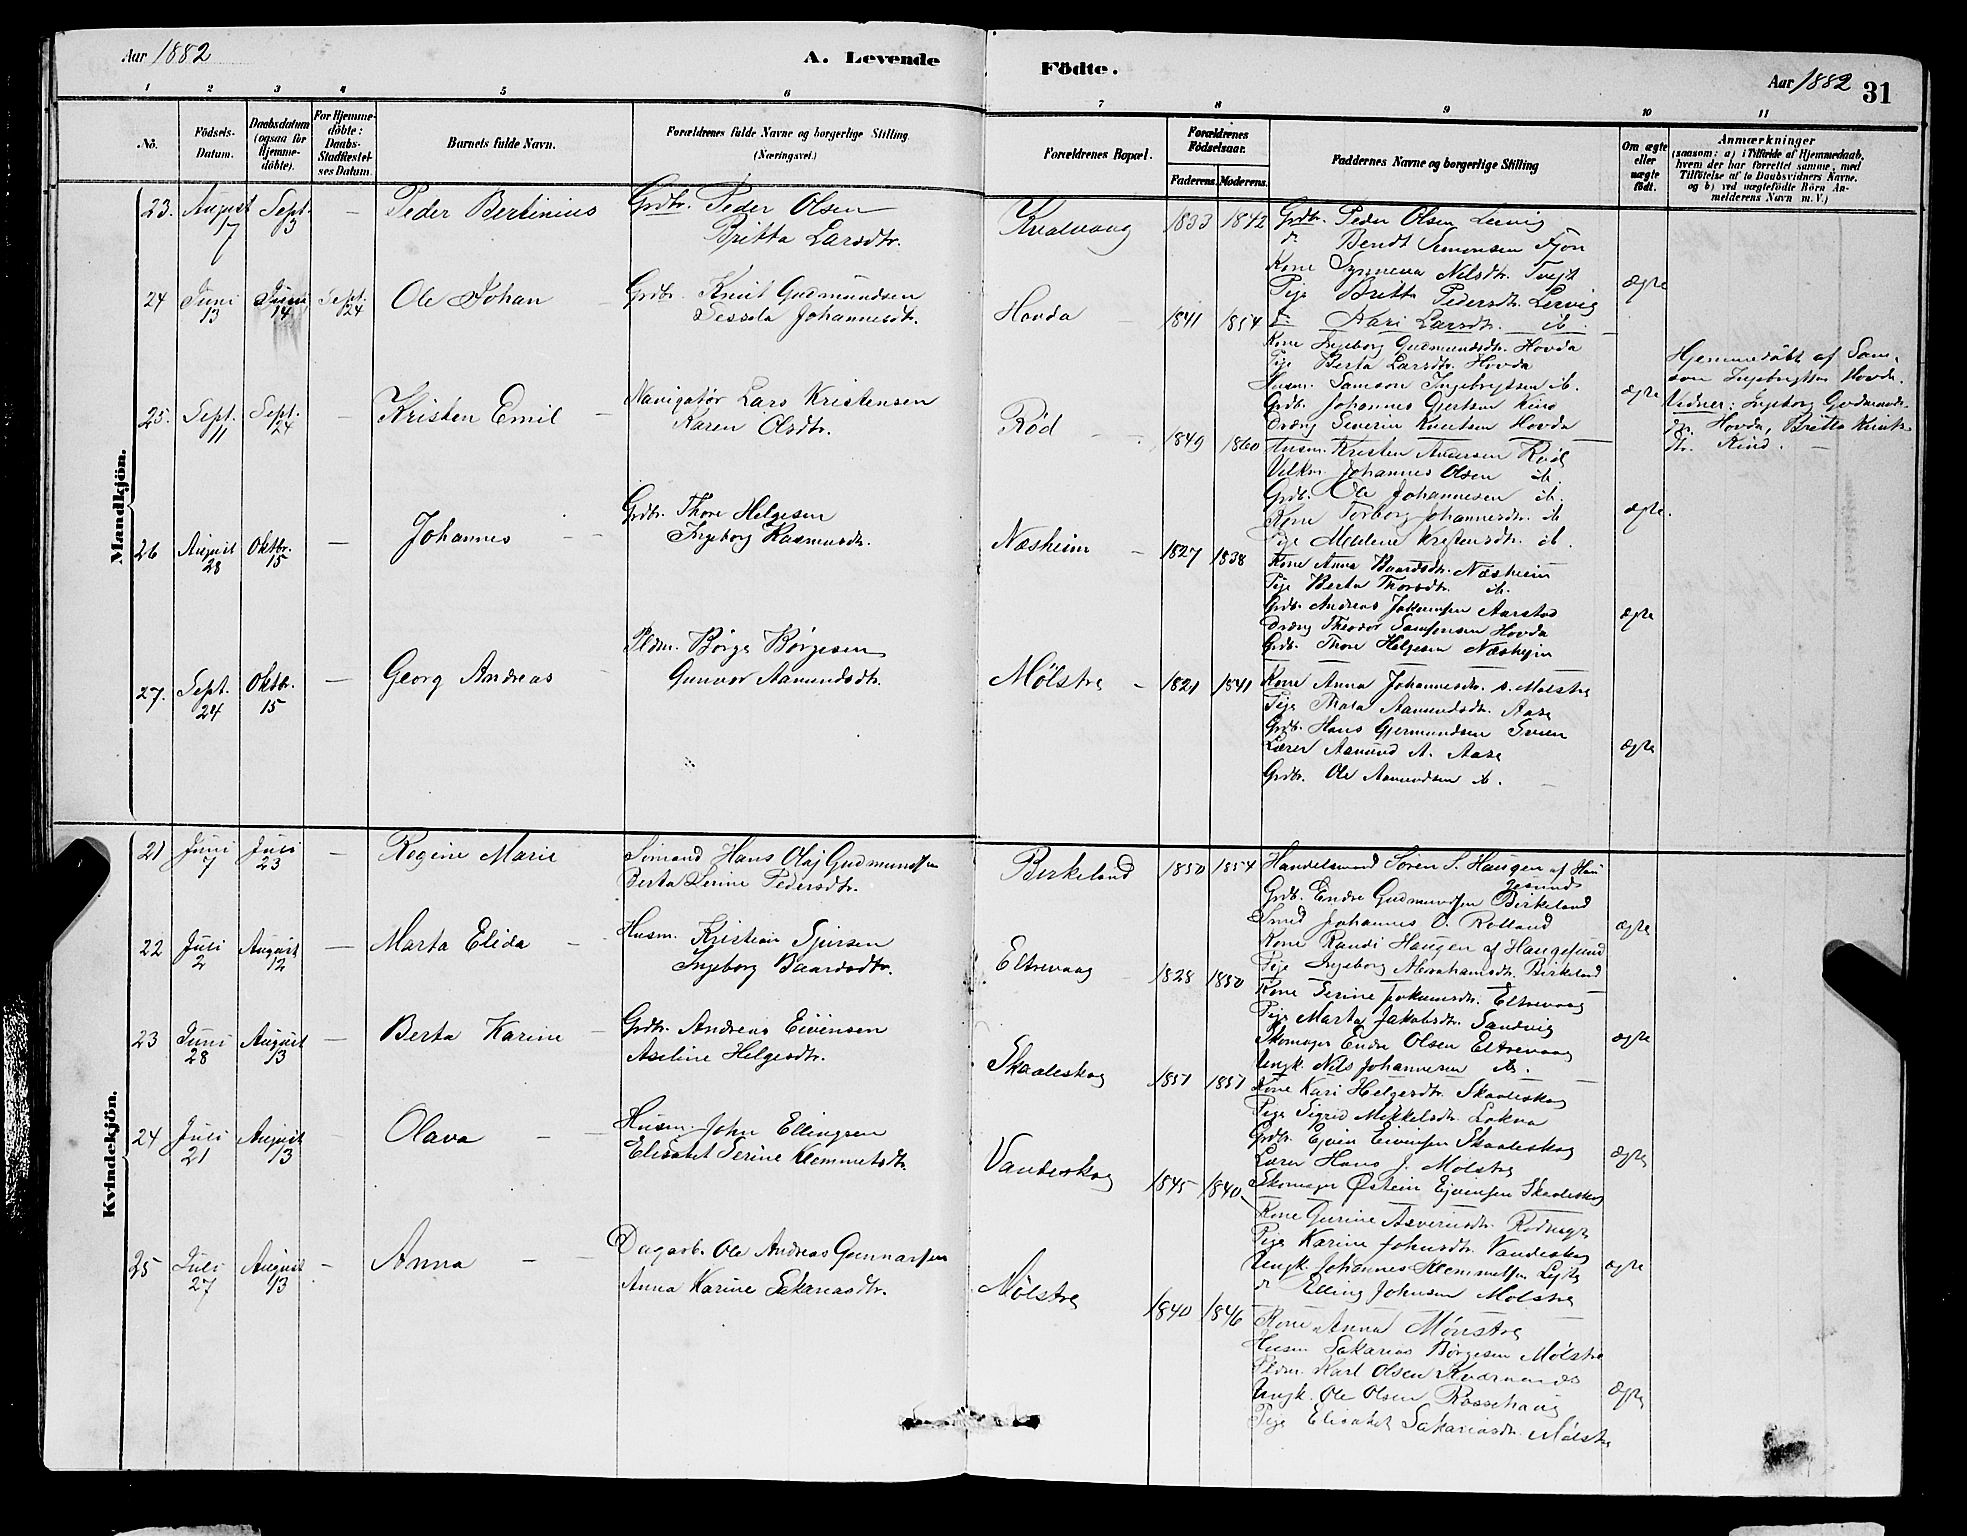 Aar 1882
A. Levende
Födte.
Aar 1882
31
1 2 3 4 5 6 7 8 9 10 11
No.
Födsels-
Datum.
Daabsdatum
(ogsaa for
Hjemme-
döbte).
For Hjemme-
döbte:
Daabs-
Stadfæstel-
ses Datum.
Barnets fulde Navn.
Forældrenes fulde Navne og borgerlige Stilling
(Næringsvei.)
Forældrenes Bopæl.
Forældrenes
Födselsaar.
Faderens. Moderens.
Faddernes Navne og borgerlige Stilling
Om ægte
eller
uægte
födt.
Anmærkninger
(saasom: a) i Tilfælde af Hjemmedaab,
hvem der har forrettet samme, med
Tilföielse af to Daabsvidners Navne,
og b) ved uægtefödte Börn An-
melderens Navn m. V.)
Mandkjön.
23. August 17 Sept. 3 — Peder Bertinius
Grdbr. Peder Olsen
Britta Larsdtr.
Kvalvaag 1833 1842
Grdbr. Peder Olsen Lervig
d. Bendt Simonsen Fjon
Kone Synneva Nilsdtr. Tveit
Pige Britta Pedersdtr. Lervig
d. Kari Larsdtr. ib.
ægte
24 Juni 13 Juni 14 Sept. 24 Ole Johan
Grdbr. Knut Gudmundsen
Dessola Johannesdtr.
Hovda 1841 1854
Kone Ingeborg Gudmundsdtr. Hovda
Pige Berta Larsdtr. Hovda
Husm. Samson Ingebrigtsen ib.
Grdbr. Johannes Gjertsen Kind
Dreng Severin Knutsen Hovda
ægte
Hjemmedöbt af Sam-
son Ingebrigtsen Hovda.
Vidner: Ingeborg Gudmunds-
dtr. Hovda, Britta Knuts-
dtr. Kind.
25. Sept. 11 Sept. 24 — Kristen Emil
Navigatør Lars Kristensen
Karen Olsdtr.
Röd 1849 1860
Husm. Kristen Andersen Röd
Johannes Olsen ib.
Grdbr. Ole Johannesen ib.
Kone Torborg Johannesdtr. ib
Pige Malene Kristensdtr. ib.
ægte.
26 August 28 Oktbr. 15 — Johannes
Grdbr. Thore Helgesen
Ingeborg Rasmusdtr.
Næsheim 1827 1838
Kone Anna Baardsdtr. Næsheim
Pige Berta Thorsdtr. ib.
Grdbr. Andreas Jakobsen Aarstad
Dreng Theodor Samsonsen Hovda
Grdbr. Thore Helgesen Næsheim
ægte
27. Sept. 24 Oktbr. 15 — Georg Andreas
Pldm. Börge Börgesen
Gunvor Aamundsdtr.
Mölstre 1821 1841
Kone Anna Johannesdtr. Mølstre
Pige Thala Aamundsdtr. Aase
Grdbr. Hans Gjermundsen Sveen
Lærer Aamund A. Aase
Grdbr. Ole Aamundsen ib.
ægte
Kvindekjön.
21 Juni 7 Juli 23 — Regine Marie
Sömand Hans Olaj Gudmundsen
Berta Serine Pedersdtr.
Birkeland 1850 1854
Handelsmand Sören S. Haugen af Hau-
gesund
Grdb. Endre Gudmundsen Birkeland
Smed Johannes O. Rolland
Kone Randi Haugen af Haugesund
Pige Ingeborg Abrahamsdtr. Birkeland
ægte
22 Juli 2 August 12 — Marta Elida
Husm. Kristian Sjursen
Ingeborg Baardsdtr.
Eltrevaag 1828 1850
Kone Serine Jokumsdtr. Eltrevaag
Pige Marta Jakobsdtr. Sandvig
Skomager Endre Olsen Eltrevaag
Ungk. Nils Johannesen ib.
ægte
23 Juni 28 August 13 — Berta Karine
Grdbr. Andreas Eivinsen
Aseline Helgesdtr.
Skaaleskog 1857 1857
Kone Kari Helgesdtr. Skaaleskog
Pige Sigrid Mikkelsdtr. Lokna
Grdbr. Ejvin Eivinsen Skaaleskog
Lærer Hans J. Mølstre
Skomager Östein Ejvinsen Skaaleskog
ægte
24 Juli 21 August 13 — Olava
Husm. John Ellingsen
Elisabet Serine Klemmetsdtr.
Vandeskog 1845 1840
Kone Gurine Asverusdtr.
Pige Karine Johnsdtr. Vandeskog
Ungk. Johannes Klemmetsen
d. Elling Johnsen Mølstre
ægte
25 Juli 27 August 13 — Anna
Dagarb. Ole Andreas Gunnarsen
Anna Karine Sakariasdtr.
Mölstre 1840 1846
Kone Anna Mönstre
Husm Sakarias Børgesen Mölstre
Pldm. Karl Olsen
Ungk. Ole Olsen Rossehaug
Pige Elisabet Sakariasdtr. Mölstre
ægte